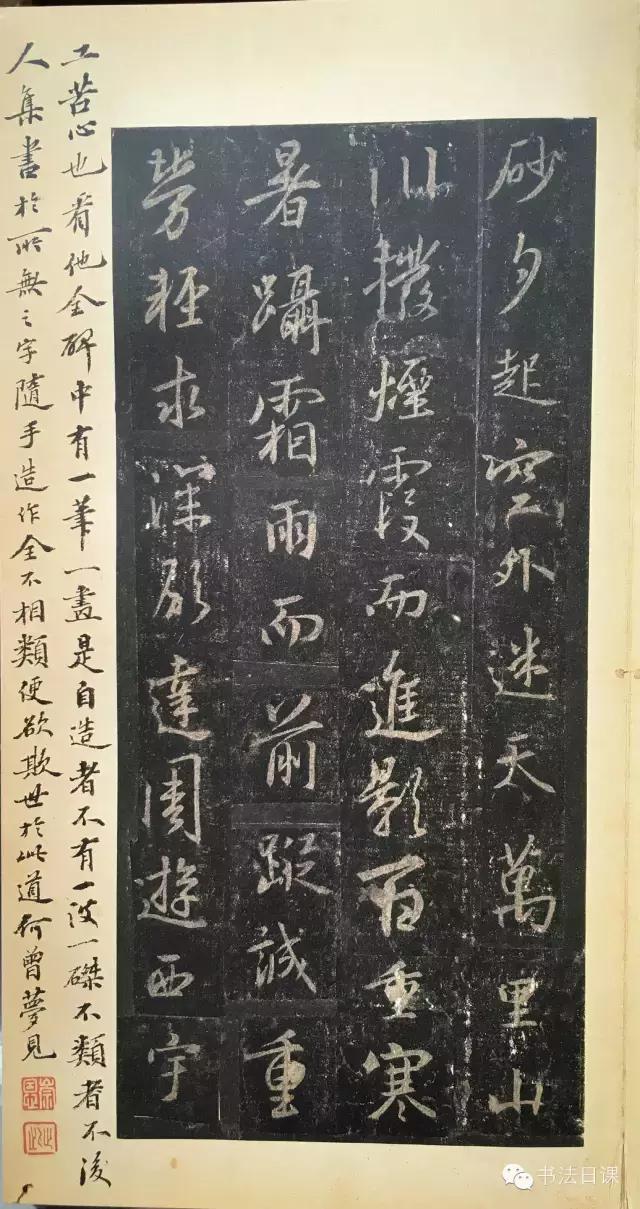 砂夕起空外迷天萬里山
川撥煙霞而進影百重寒
暑躡霜雨而前蹤誠重
勞輕求深願達周遊西宇
工苦心也看他全碑中有一筆一畫是自造者不有一波一磔不類者不後
人集書於所無之字隨手造作全不相類便欲欺世於此道何曾夢見
书法日课